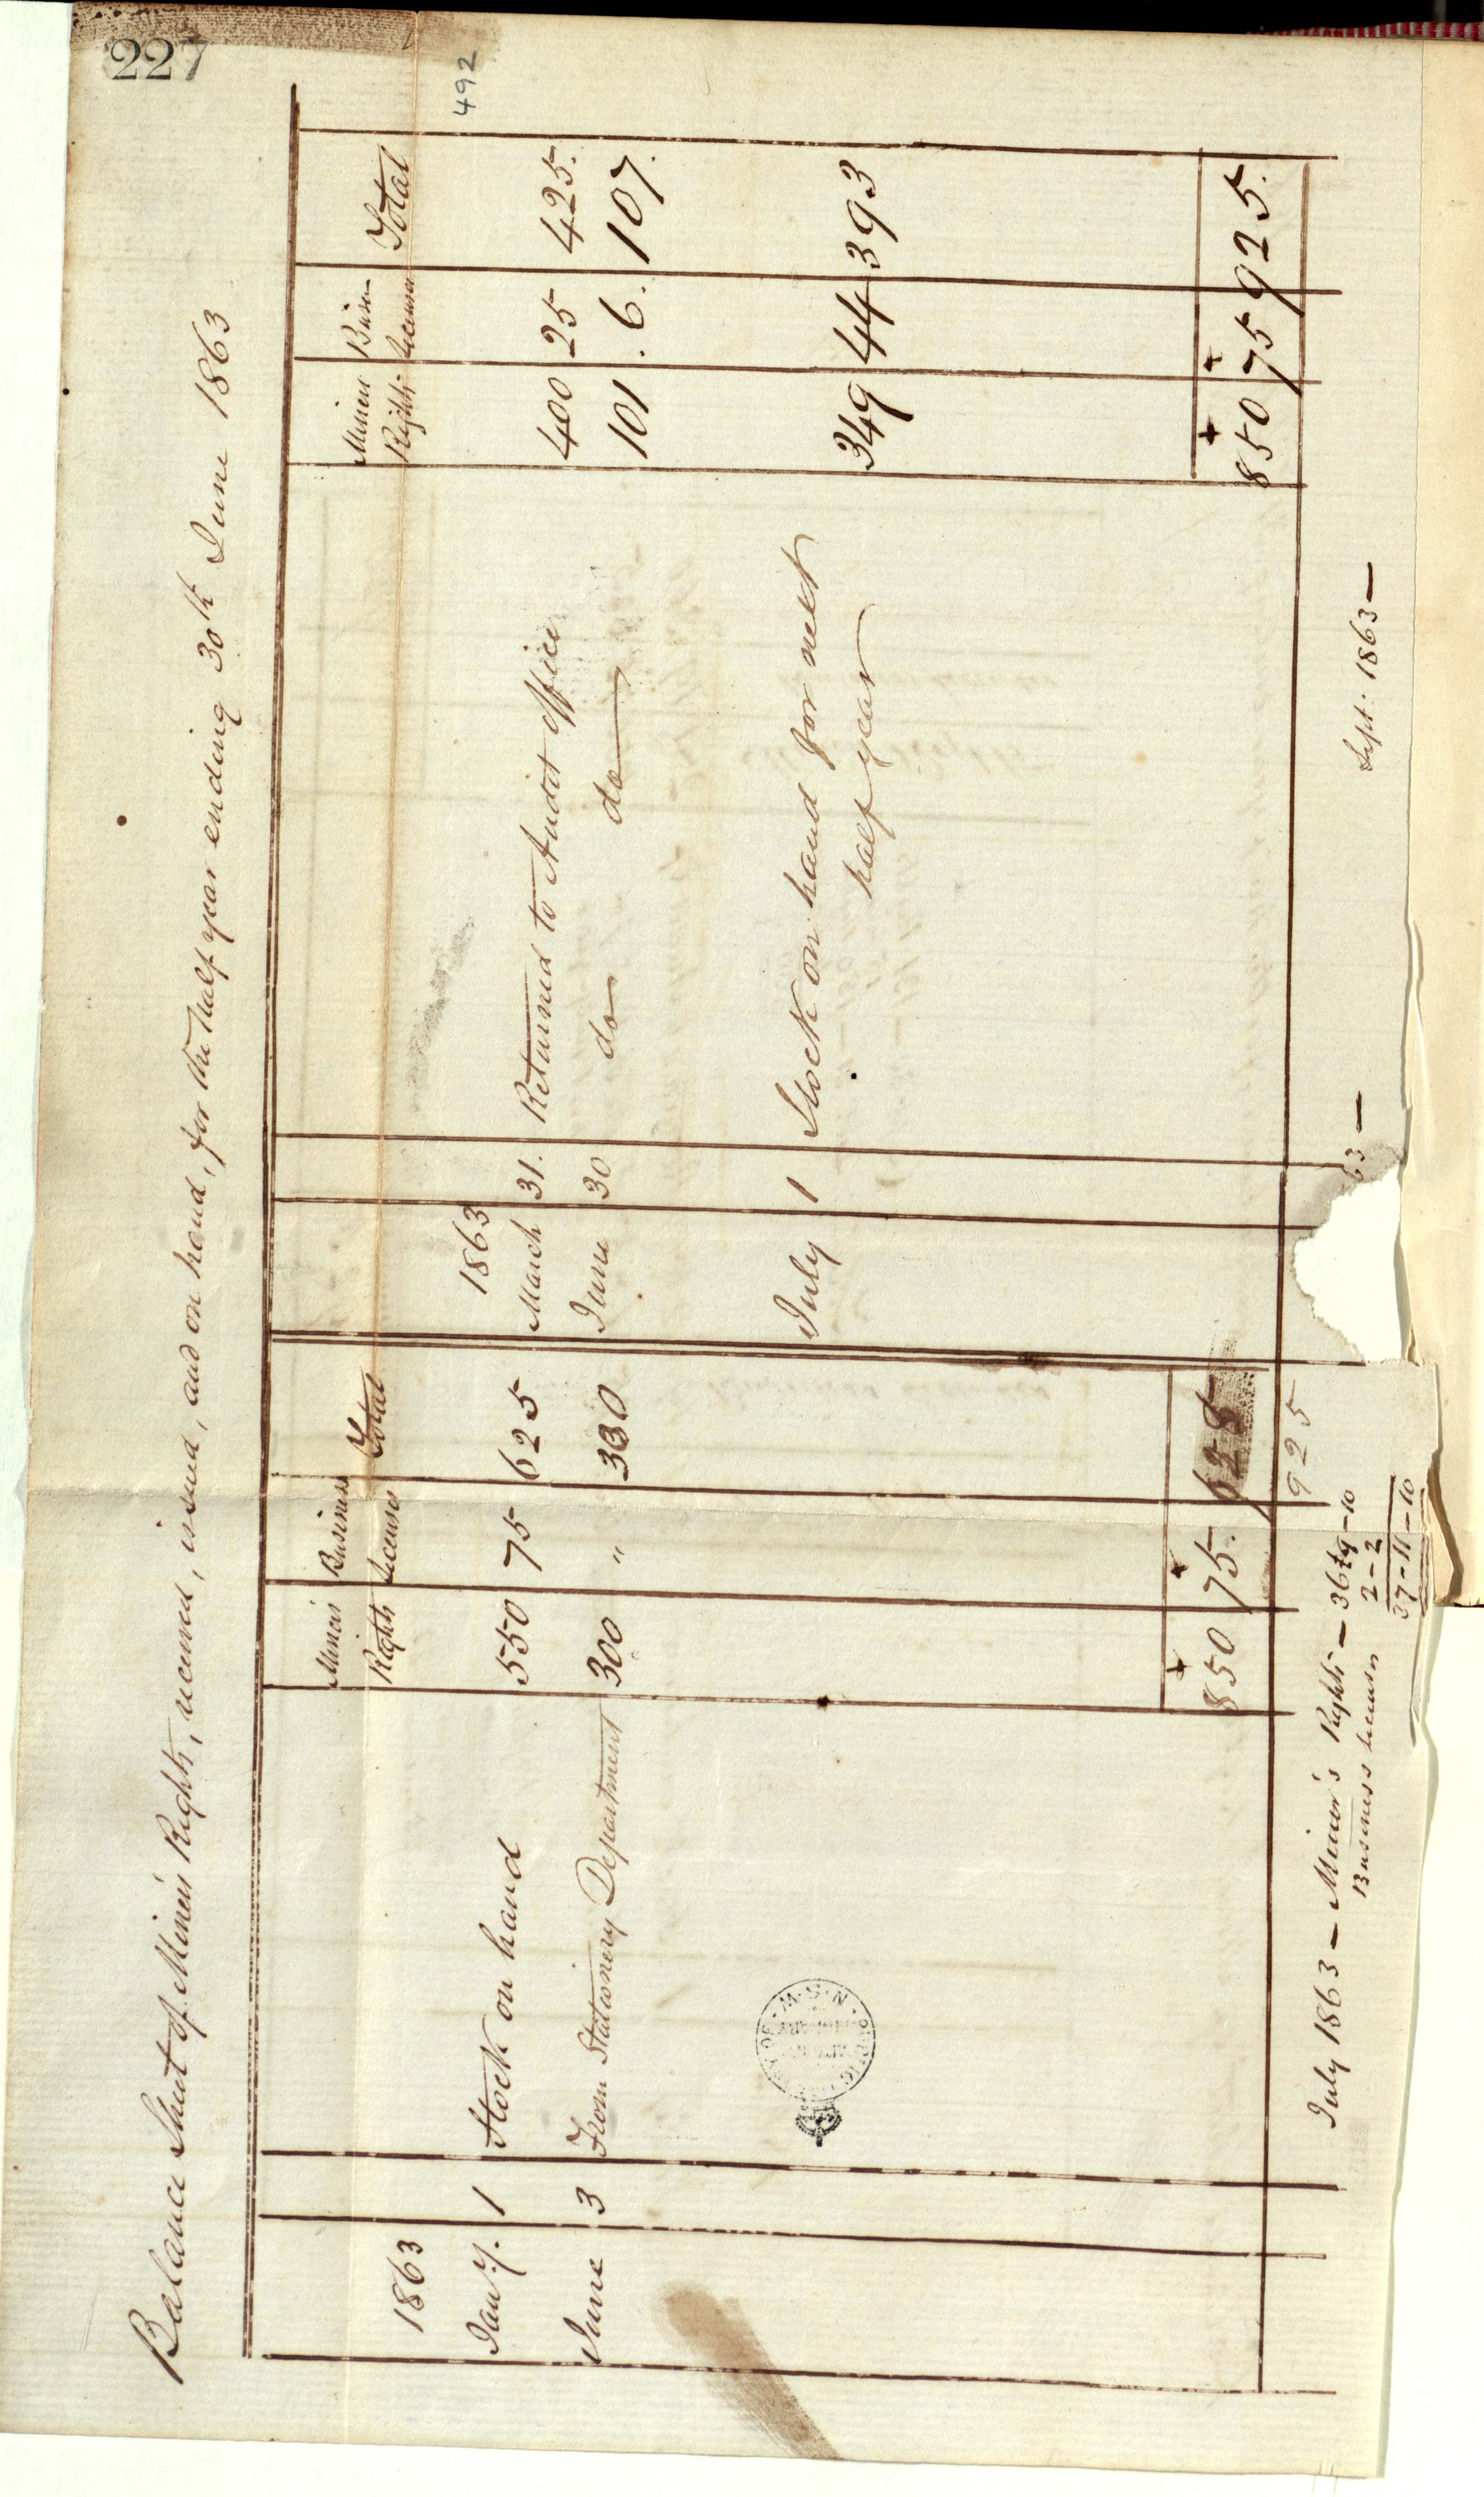 227
492
Balance Sheet of Miner's Rights, received, issued, and on hand, for the half year ending 30th June 1863
Miners Rights Business Licenses Total
Miners Rights Busi- Licenses Total
1863
1863
Jany. 1 Stock on hand 550 75 625
March 31. Returned to Audit Office 400 25 425.
June 3 From Stationery Department 300 " 300
June 30 do do 101 . 6. 107.
July 1 Stock on hand for next 349 44 393
half year
850 75. 625
850 75 925.
925
July 1863 — Miner's Rights — 36-9-10
Business Licenses 2-2
37-11-10
63 —
Sept. 1863 —
N.S.W.